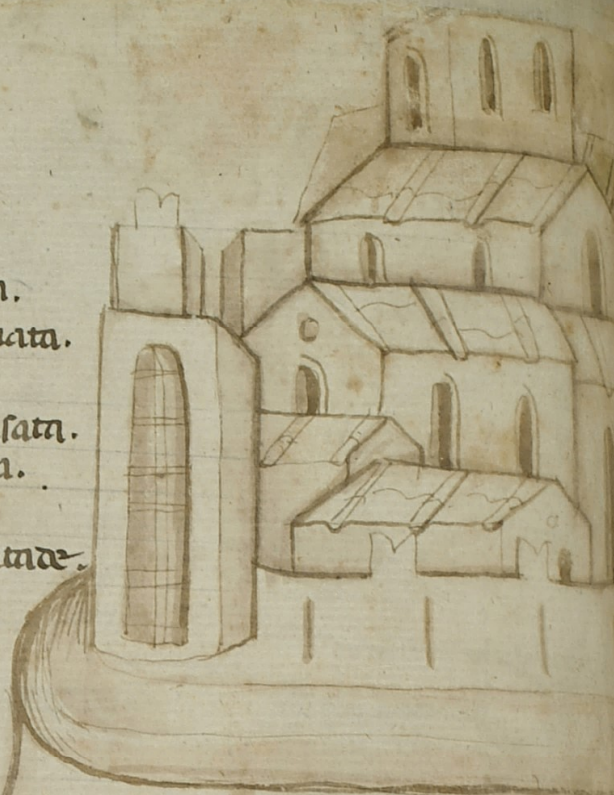 a.
uata.
sata.
a.
tade.